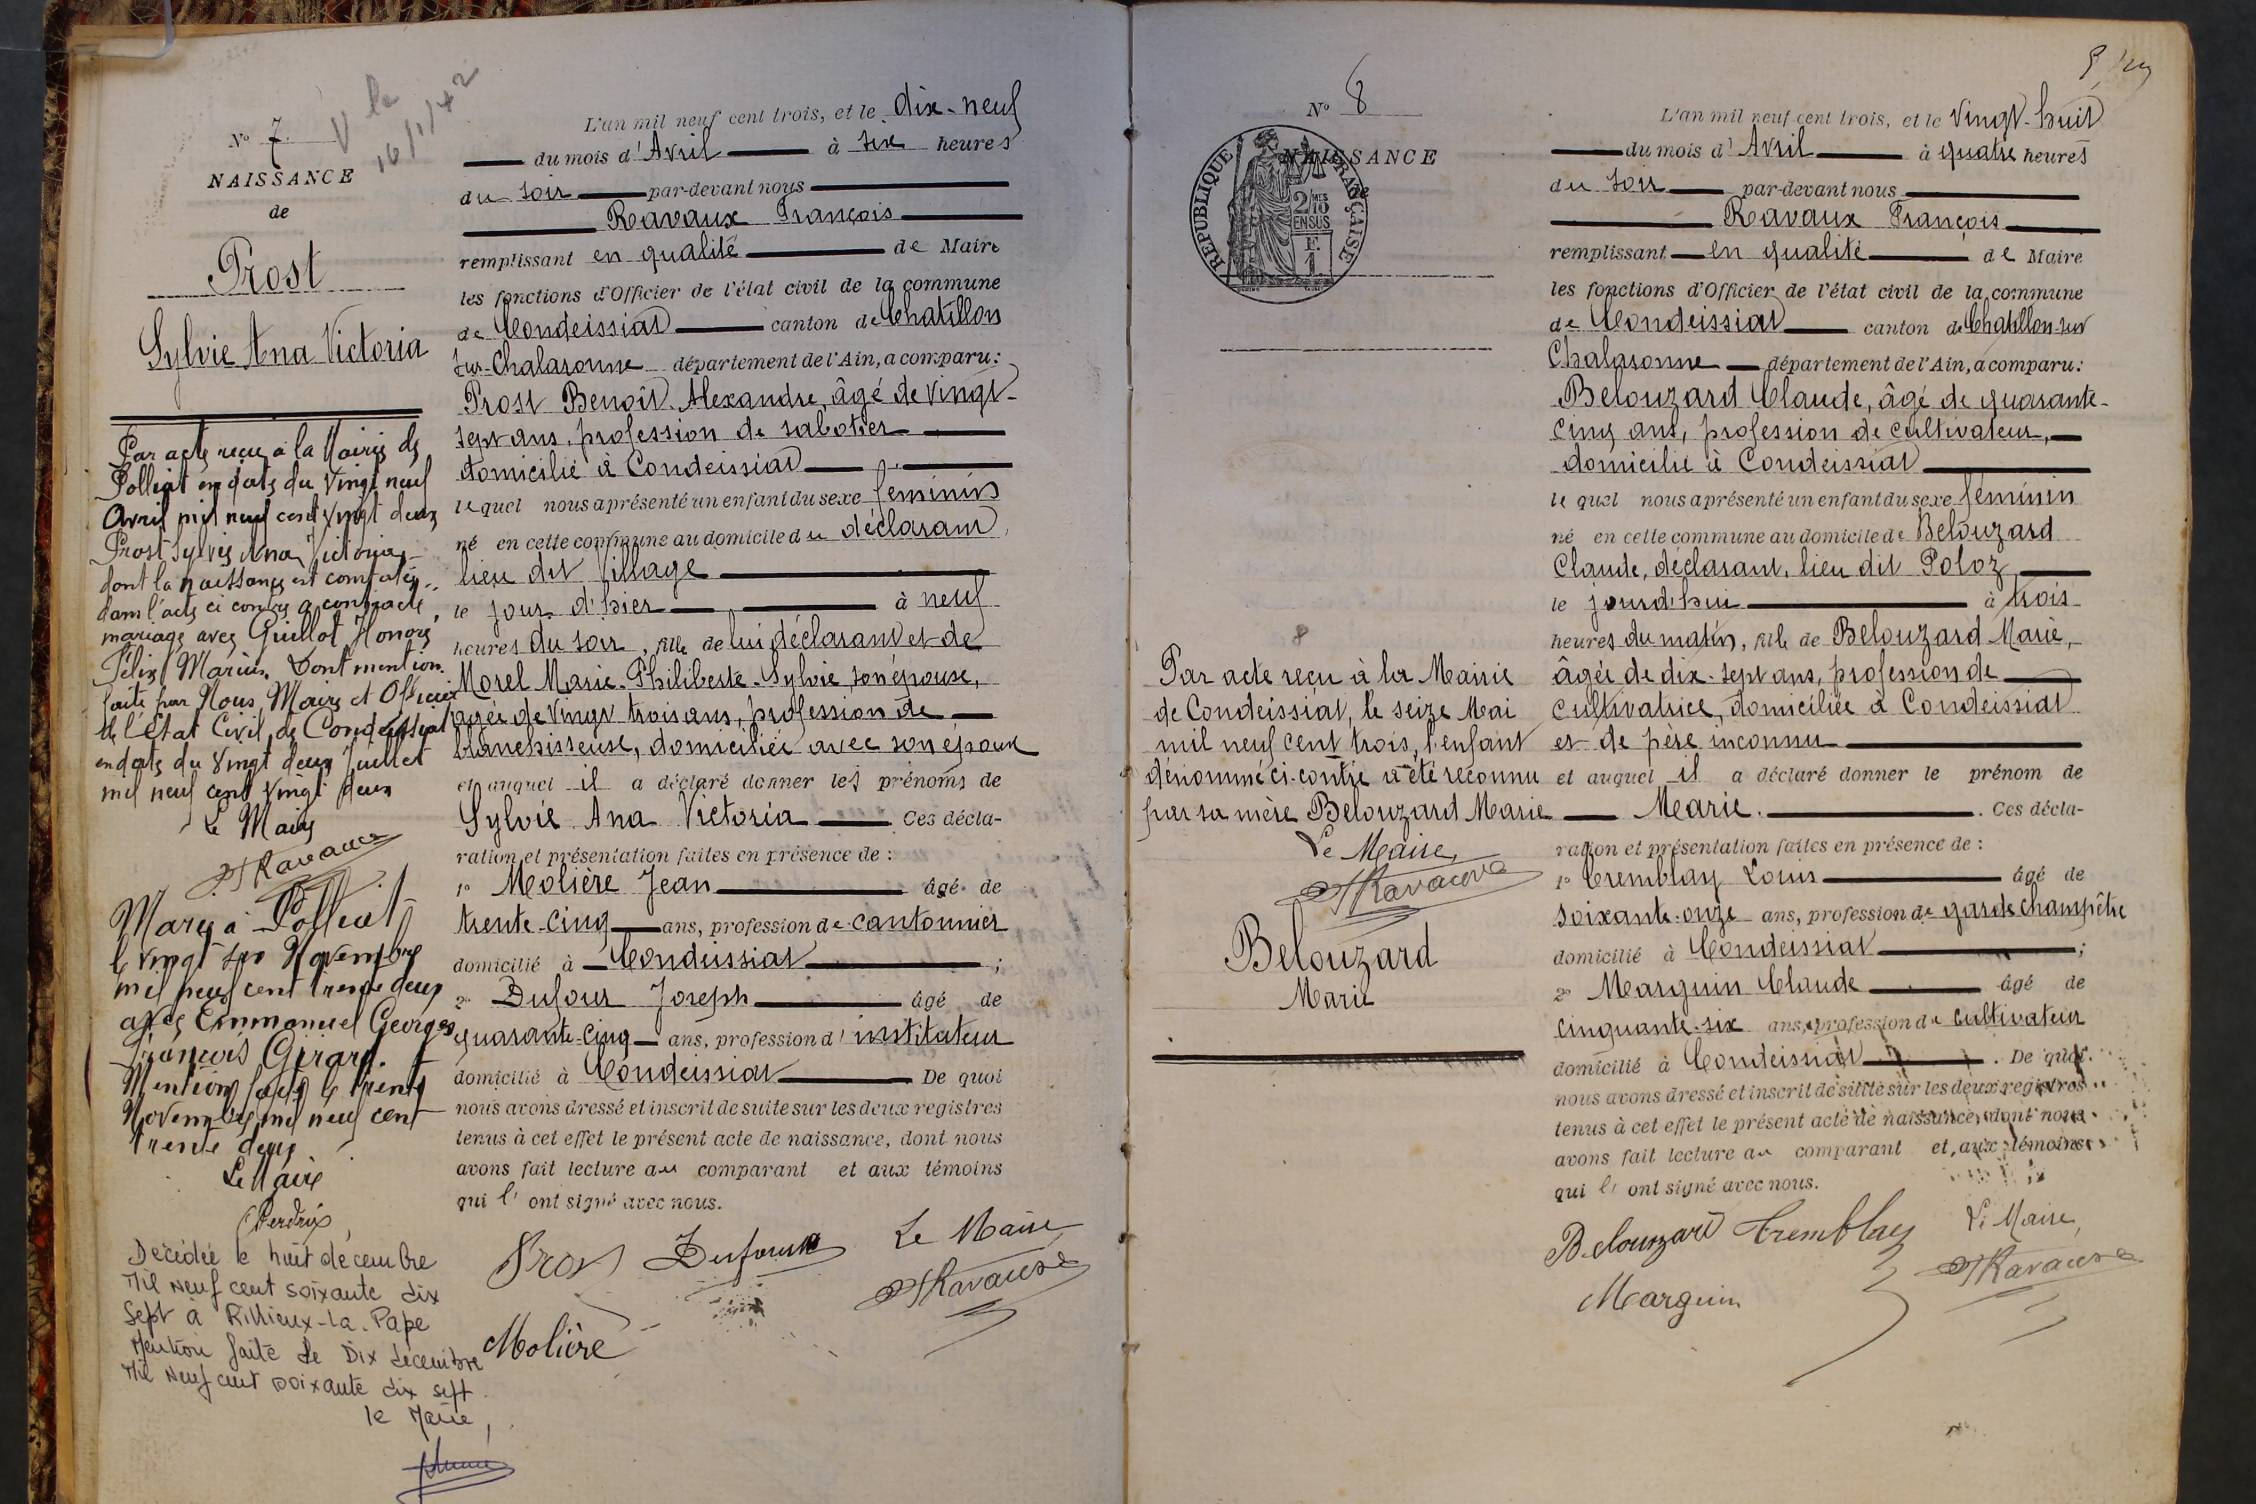 V le
16/1/42
N° 7
NAISSANCE
de
Prost
Sylvie Ana Victoria
Par acte reçu à la Mairie de
Polliat en date du vingt neuf
Avril mil neuf cent vingt deux
Prost Sylvie Ana Victoria
dont la naissance est constatée
dans l'acte ci contre a contracté
mariage avec Guillot Honoré
Félix Marius. Dont mention
faite par Nous, Maire et Officier
de l'Etat Civil, de Condeissiat
en date du vingt deux Juillet
mil neuf cent vingt deux
Le Maire
Ravaux
Mariée à Polliat
le vingt six Novembre
mil neuf cent trente deux
avec Emmanuel Georges
François Girard.
Mention faite le trente
Novembre mil neuf cent
trente deux
Le Maire
Perdrix
Décédée le huit décembre
Mil neuf cent soixante dix
sept à Rillieux-La-Pape
Mention faite le Dix décembre
Mil Neuf cent soixante dix sept.
le Maire,
L'an mil neuf cent trois, et le dix-neuf
du mois d'Avril à six heures
du soir par-devant nous
Ravaux François
remplissant en qualité de Maire
les fonctions d'Officier de l'état civil de la commune
de Condeissiat canton de Chatillon
sur-Chalaronne département de l'Ain, a comparu:
Prost Benoît Alexandre, âgé de vingt-
sept ans, profession de sabotier
domicilié à Condeissiat
lequel nous a présenté un enfant du sexe féminin
né en cette commune au domicile du déclarant,
lieu dit Village
le jour d'hier à neuf
heures du soir, fille de lui déclarant et de
Morel Marie-Philiberte-Sylvie, son épouse,
agée de vingt trois ans, profession de
blanchisseuse, domiciliée avec son époux
et auquel il a déclaré donner les prénoms de
Sylvie Ana Victoria Ces décla-
ration et présentation faites en présence de :
1° Molière Jean âgé de
trente-cinq ans, profession de cantonnier
domicilié à Condeissiat ;
2° Dufour Joseph âgé de
quarante-cinq ans, profession d'instituteur
domicilié à Condeissiat De quoi
nous avons dressé et inscrit de suite sur les deux registres
tenus à cet effet le présent acte de naissance, dont nous
avons fait lecture au comparant et aux témoins
qui l'ont signé avec nous.
Prost Dufour Le Maire
Ravaux
Molière
N° 8
NAISSANCE
RÉPUBLIQUE FRANÇAISE
2/10
EN SUS
Par acte reçu à la Mairie
de Condeissiat, le seize Mai
mil neuf cent trois, l'enfant
dénommé ci-contre a été reconnu
par sa mère Belouzard Marie
Le Maire,
Ravaux
Belouzard
Marie
L'an mil neuf cent trois, et le vingt-huit
du mois d'Avril à quatre heures
du soir par-devant nous
Ravaux François
remplissant en qualité de Maire
les fonctions d'Officier de l'état civil de la commune
de Condeissiat canton de Chatillon-sur
Chalaronne département de l'Ain, a comparu:
Belouzard Claude, âgé de quarante-
cinq ans, profession de cultivateur,
domicilié à Condeissiat
lequel nous a présenté un enfant du sexe féminin
né en cette commune au domicile de Belouzard
Claude, déclarant, lieu dit Poloz
le jourd'hui à trois
heures du matin, fille de Belouzard Marie,
âgée de dix-sept ans, profession de
cultivatrice, domiciliée à Condeissiat
et de père inconnu
et auquel il a déclaré donner le prénom de
Marie. Ces décla-
ration et présentation faites en présence de :
1° Tremblay Louis âgé de
soixante-onze ans, profession de garde champêtre
domicilié à Condeissiat ;
2° Marguin Claude âgé de
cinquante-six ans, profession de cultivateur
domicilié à Condeissiat . De quoi
nous avons dressé et inscrit de suite sur les deux registres
tenus à cet effet le présent acte de naissance, dont nous
avons fait lecture au comparant et aux témoins
qui l'ont signé avec nous.
Belouzard Tremblay Le Maire,
Ravaux
Marguin